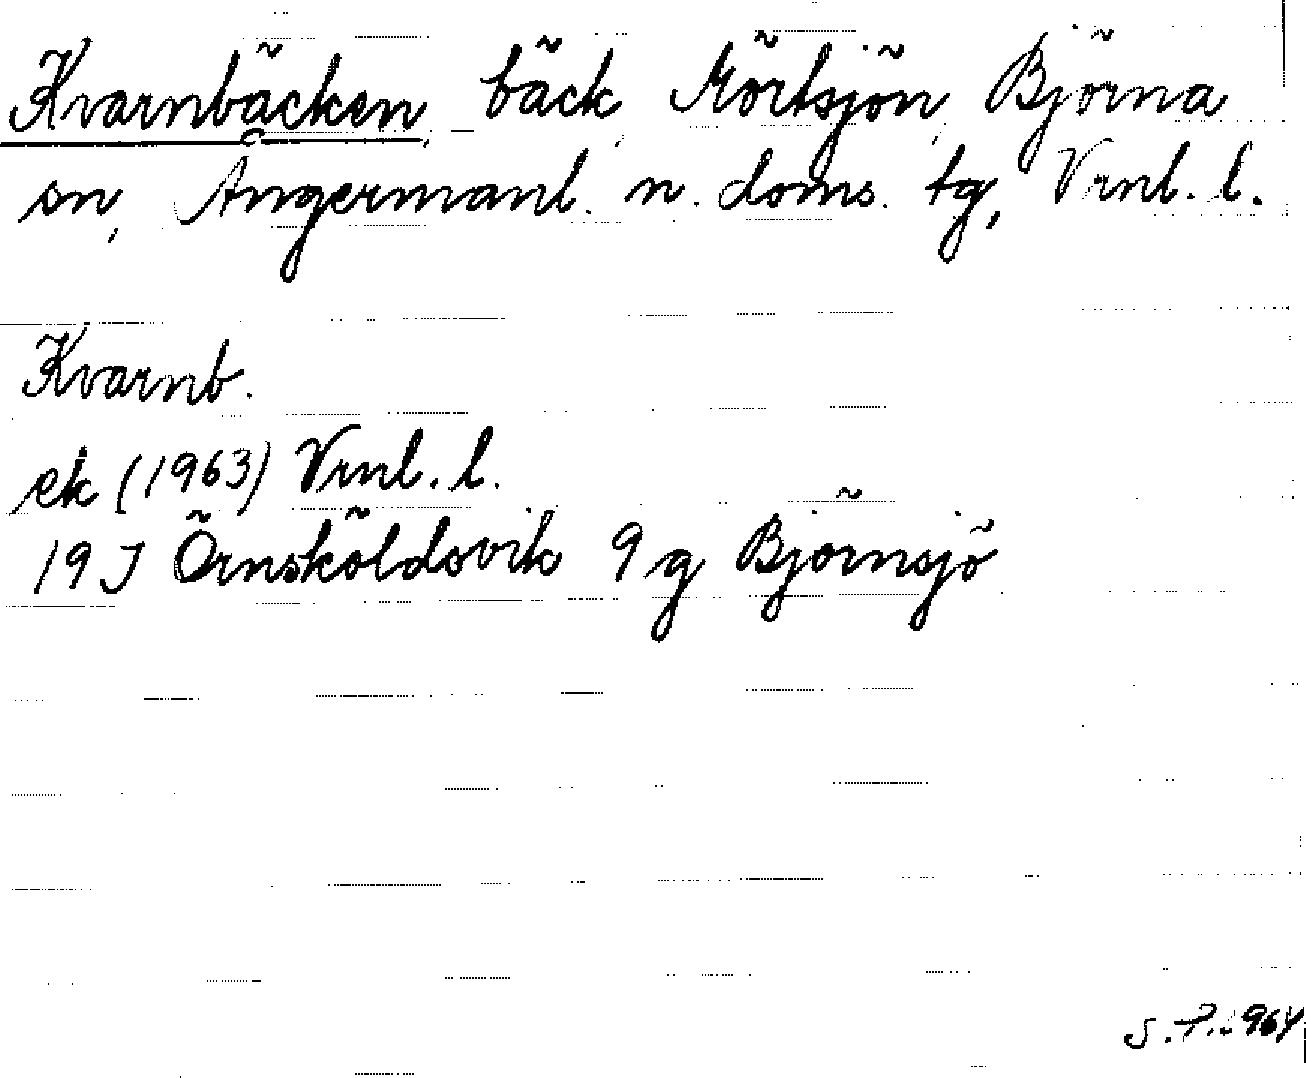 Kvarnbäcken, bäck, Mörtsjön, Björna
sn, Ångermanl. n. doms. tg, Vrnl. l.
Kvarnb.
ek (1963) Vrnl. l.
19 J Örnsköldsvik 9 g Björnsjö
S.P. 1964